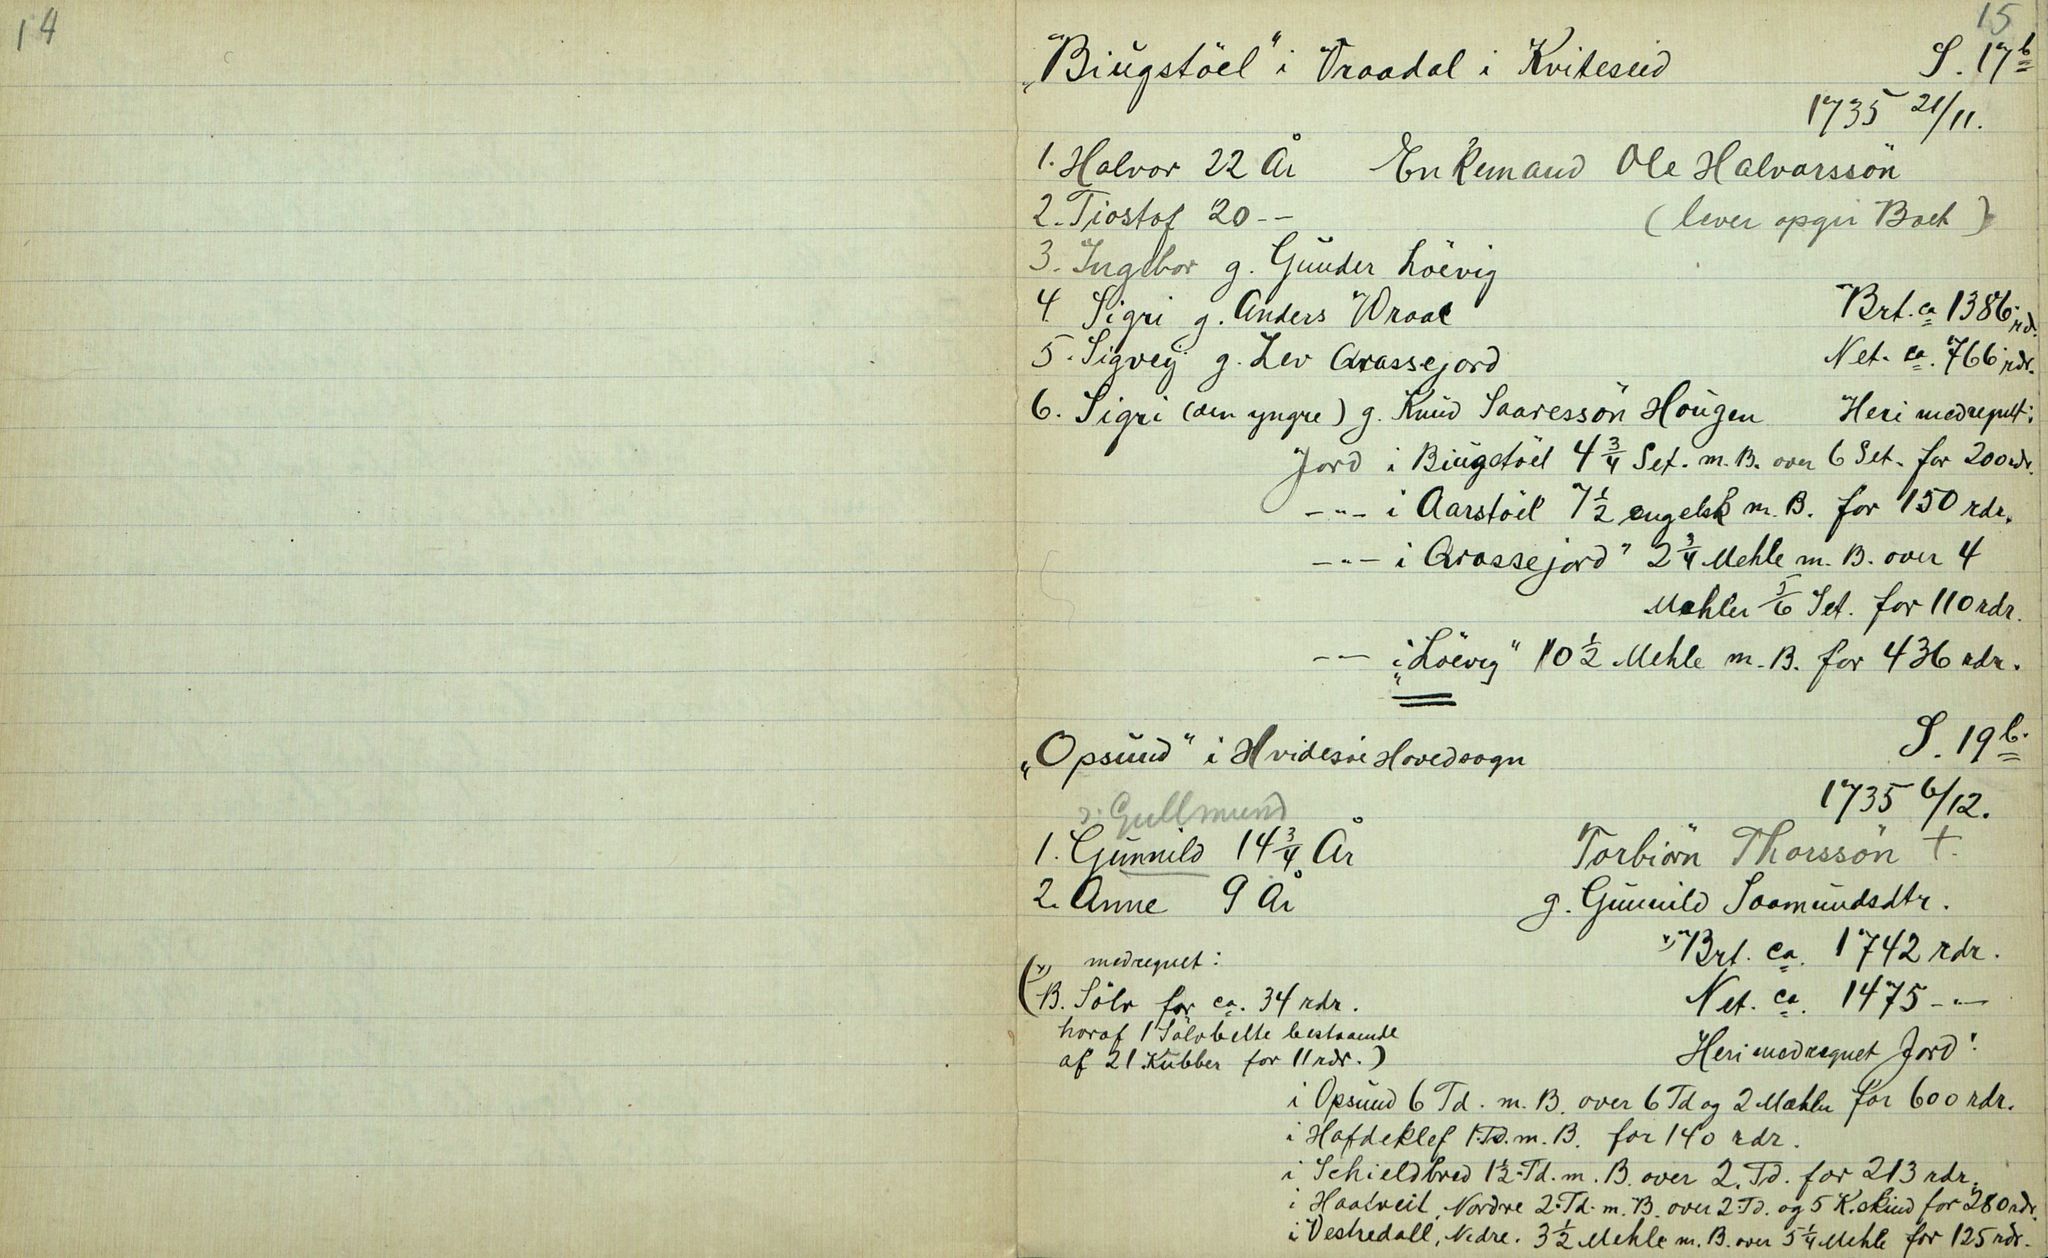 14
15
„Biugstöel“ i Vraadal i Kviteseid S. 17b
1735 21/11.
1. Halvor 22 År Enkemand Ole Halvorssön
2. Tiostof 20 -- (lever opgir Boet)
3. Ingebor g. Gunder Löevig
4. Sigri g. Anders Wraae Brt. ca 1386 rd.
5. Sigvej g. Lev Qvassejord Net. ca. 766 rdr.
6. Sigri (den yngre) g. Knud Saaressön Hougen Heri medregnet:
Jord i Biugstöel 4 3/4 Set. m. B. over 6 Set. for 200 rdr.
-"- i Aarstöel 7 1/2 engelsk m. B. for 150 rdr.
-"- i Qvassejord" 2 3/4 Mehle m. B. over 4
Mæhler 5/6 Set. for 110 rdr.
-- i „Löevig“ 10 1/2 Mehle m. B. for 436 rdr.
„Opsund“ i Hvidesöe Hovedsogn S. 19b.
1735 6/12.
Gullmund
1. Gunnild 14 3/4 År Torbiörn Thorssön †.
2. Anne 9 År g. Gunnild Saamundsdtr.
x) Brt. ca. 1742 rdr.
(x) medregnet:
B. Sölv for ca. 34 rdr. Net. ca. 1475 -"-
hvoraf 1 Sölvbelte bestaaende
af 21 Kubber for 11 rdr.) Heri medregnet Jord:
i Opsund 6 Td. m. B. over 6 Td og 2 Mæhler for 600 rdr.
i Hafdeklef 1 Td. m. B. for 140 rdr.
i Schieldbred 1 1/2 Td. m. B. over 2 Td. for 213 rdr.
i Haatveit, Nordre 2 Td. m. B. over 2 Td. og 5 K.skind for 280 rdr.
i Vestredall, Nedre. 3 1/2 Mehle m. B. over 5 1/4 Mehle for 125 rdr.